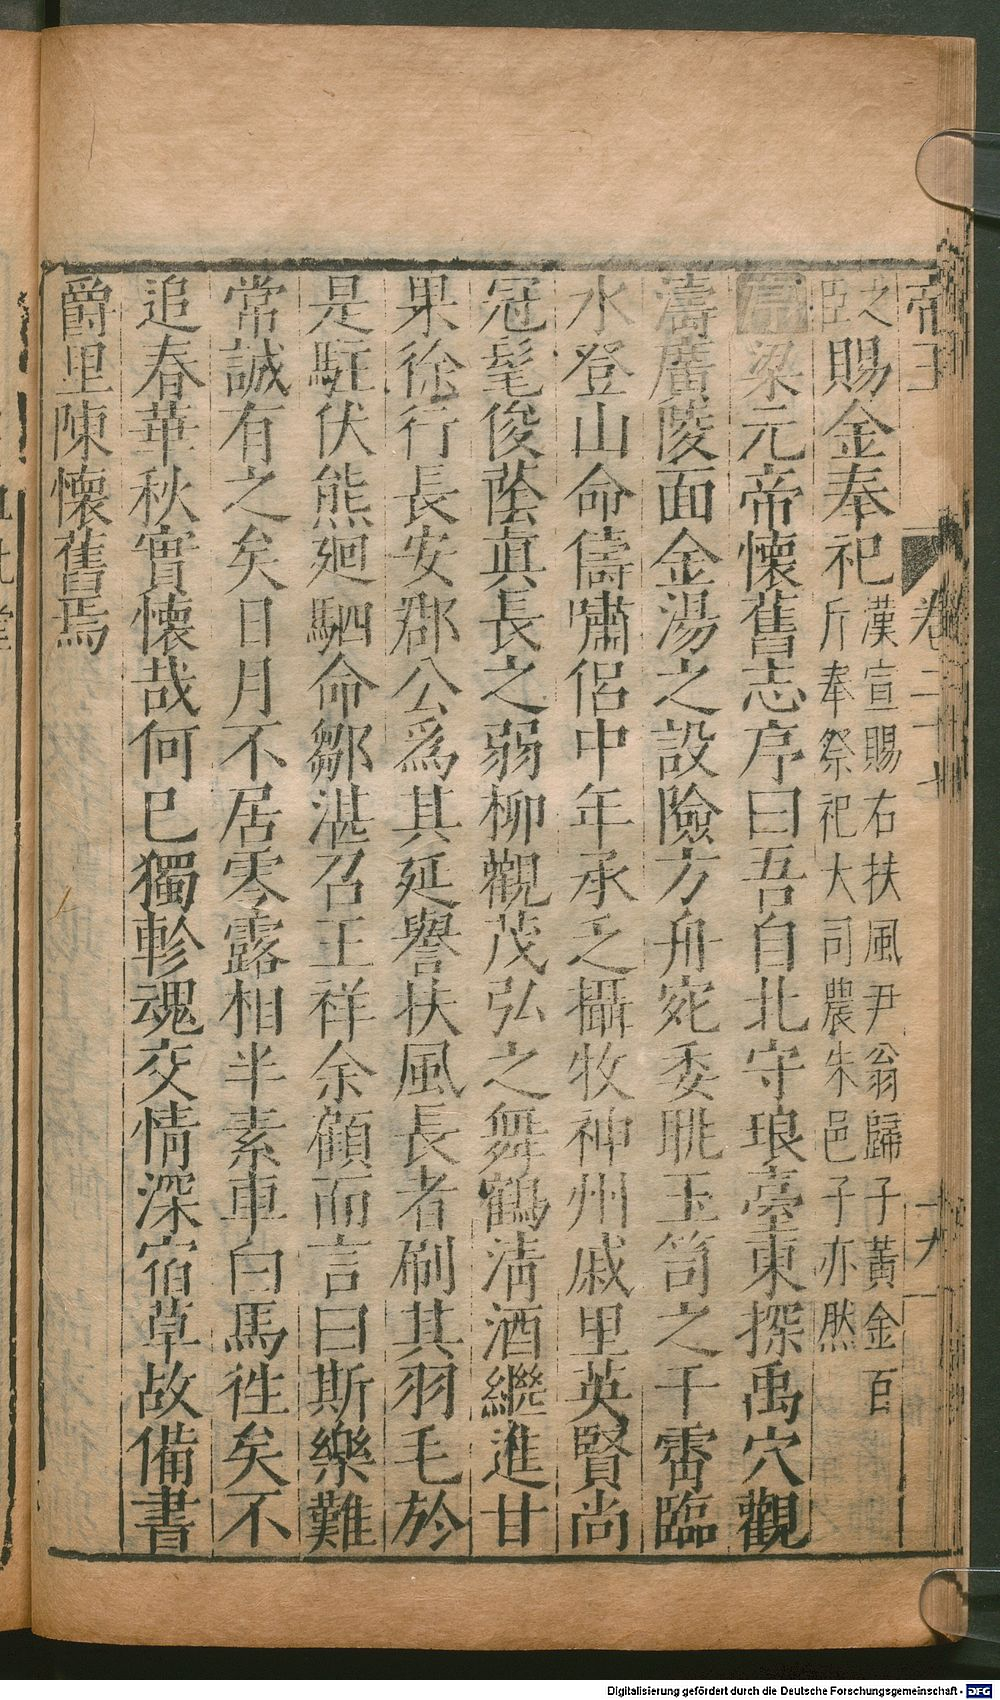 帝王 卷二十七 十九
之臣賜金奉祀漢宣賜右扶風尹翁歸子黃金百斤奉祭祀大司農朱邑子亦然
梁元帝懷舊志序曰吾自北守琅臺東探禹穴觀
濤廣陵面金湯之設險方舟宛委眺玉笥之干霄臨
水登山命儔嘯侣中年承乏攝牧神州戚里英賢尚
冠髦俊蔭真長之弱柳觀茂弘之舞鶴清酒繼進甘
果徐行長安郡公爲其延譽扶風長者刷其羽毛於
是駐伏熊廻駟命鄒湛召王祥余顧而言曰斯樂難
常誠有之矣日月不居零露相半素車白馬徃矣不
追春華秋實懷哉何已獨軫魂交情深宿草故備書
爵里陳懷舊焉
Digitalisierung gefördert durch die Deutsche Forschungsgemeinschaft - DFG